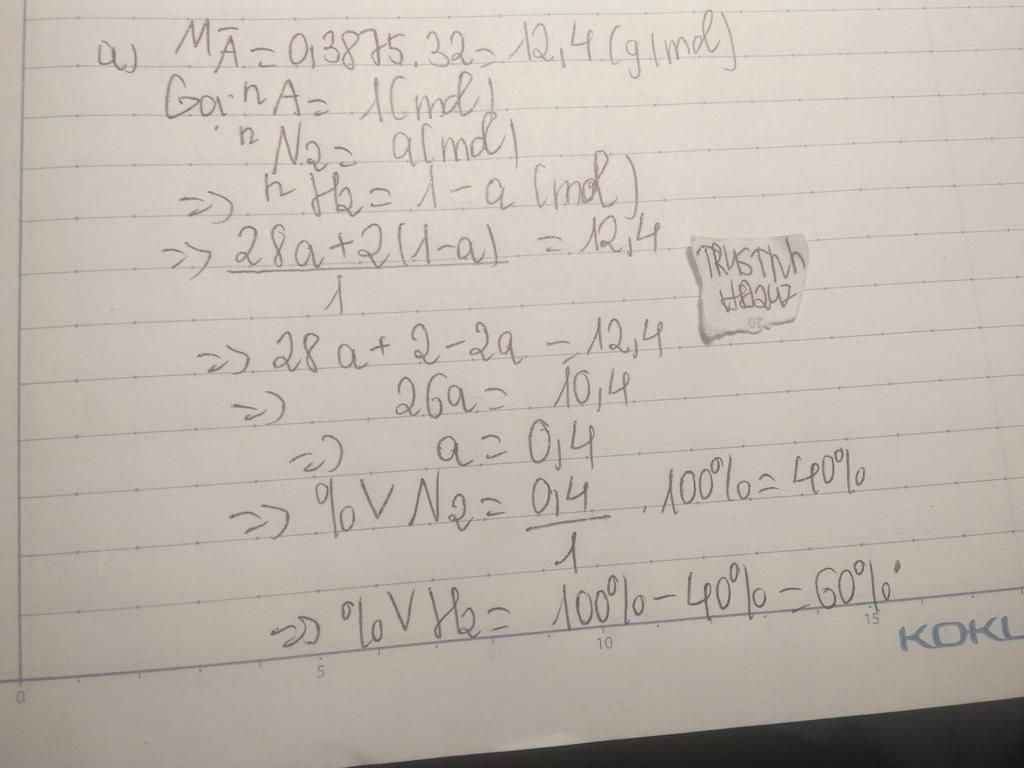 a) MĀ = 0,3875.32 = 12,4 (g/mol)
Gọi n A = 1 (mol)
n N2 = a (mol)
=> n H2 = 1 - a (mol)
=> 28a + 2(1-a) = 12,4
1
=> 28a + 2 - 2a = 12,4
=> 26a = 10,4
=> a = 0,4
=> %V N2 = 0,4 . 100% = 40%
1
=> %V H2 = 100% - 40% = 60%
0 5 10 15
KOKU
20